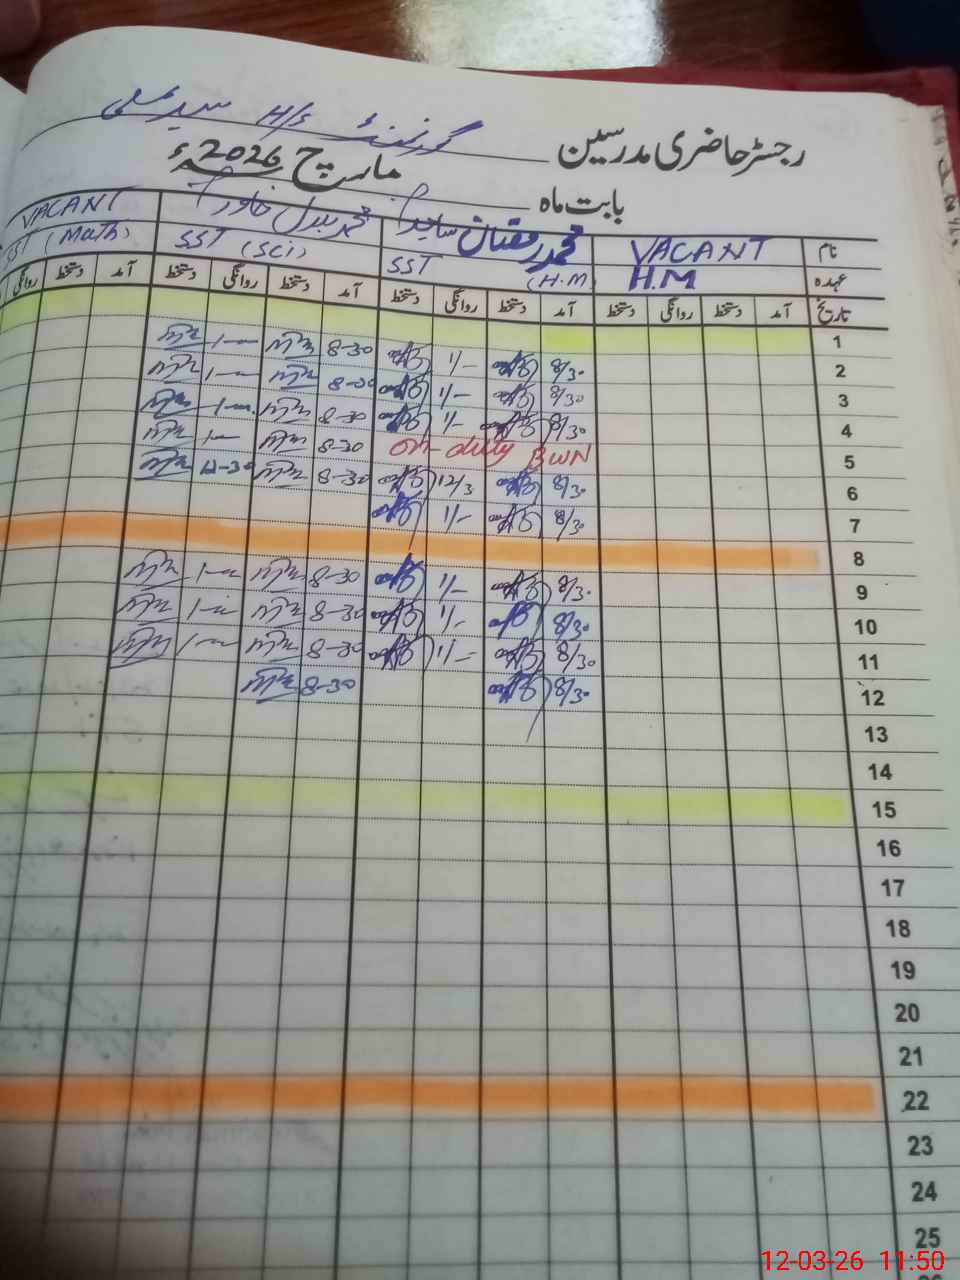 گورنمنٹ H/S سید علی
رجسٹر حاضری مدرسین
بابت ماہ مارچ 2026ء
نام VACANT محمد رمضان ساجد محمد بلال خاور VACANT
عہدہ H.M SST (H.M) SST (Sci) SST (Math)
تاریخ آمد دستخط روانگی دستخط آمد دستخط روانگی دستخط آمد دستخط روانگی دستخط آمد دستخط روانگی
1
2 8/30 1/- 8-30 1-
3 8/30 1/- 8-30 1-
4 8/30 1/- 8-30 1-
5 on duty BWN 8-30 1-
6 8/30 12/3 8-30 12-30
7 8/30 1/-
8
9 8/30 1/- 8-30 1-
10 8/30 1/- 8-30 1-
11 8/30 1/- 8-30 1-
12 8/30 8-30
13
14
15
16
17
18
19
20
21
22
23
24
25
12-03-26 11:50